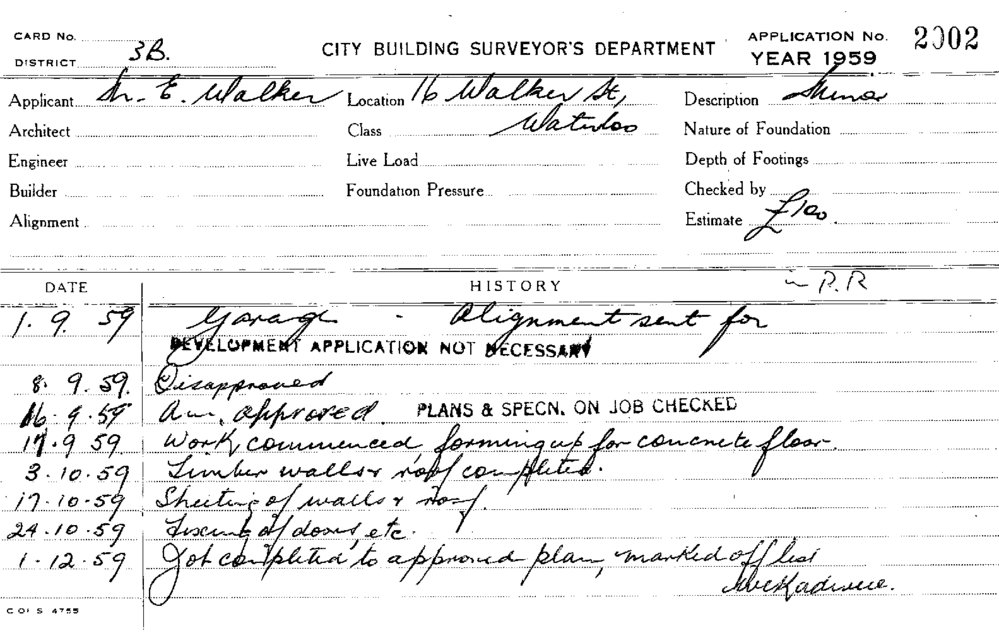 CARD No.
DISTRICT 3B.
CITY BUILDING SURVEYOR'S DEPARTMENT
APPLICATION No. 2002
YEAR 1959
Applicant Mr. E. Walker Location 16 Walker St, Description Minor
Architect Class Waterloo Nature of Foundation
Engineer Live Load Depth of Footings
Builder Foundation Pressure Checked by
Alignment Estimate £100
DATE HISTORY R.R
1. 9. 59 Garage - Alignment sent for
DEVELOPMENT APPLICATION NOT NECESSARY
8. 9. 59. Disapproved
16. 9. 59 Am. approved PLANS & SPECN. ON JOB CHECKED
17. 9 59 Work commenced forming up for concrete floor.
3. 10. 59 Timber walls & roof completed.
17. 10. 59 Sheeting of walls & roof.
24. 10. 59 Fixing of doors, etc.
1. 12. 59 Job completed to approved plan, marked off list
C OF S 4755